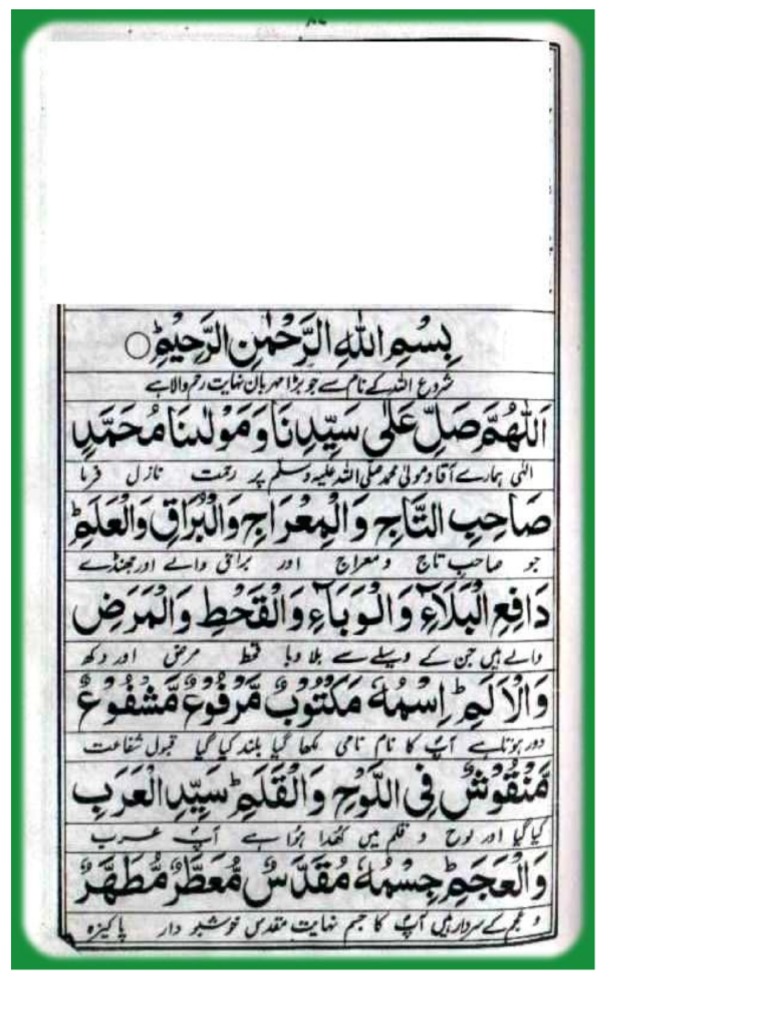 بِسْمِ اللهِ الرَّحْمٰنِ الرَّحِيْمِ ○
شروع اللہ کے نام سے جو بڑا مہربان نہایت رحم والا ہے
اَللّٰهُمَّ صَلِّ عَلٰى سَيِّدِنَا وَمَوْلٰىنَا مُحَمَّدٍ
الٰہی ہمارے آقا و مولیٰ محمد صلی اللہ علیہ وسلم پر رحمت نازل فرما
صَاحِبِ التَّاجِ وَالْمِعْرَاجِ وَالْبُرَاقِ وَالْعَلَمِؕ
جو صاحب تاج و معراج اور براق والے اور جھنڈے
دَافِعِ الْبَلَآءِ وَالْوَبَآءِ وَالْقَحْطِ وَالْمَرَضِ
والے ہیں جن کے وسیلے سے بلا وبا قحط مرض اور دکھ
وَالْاَلَمِؕ اِسْمُهٗ مَكْتُوْبٌ مَّرْفُوْعٌ مَّشْفُوْعٌ
دور ہوتا ہے آپؐ کا نام نامی لکھا گیا بلند کیا گیا قبول شفاعت
مَّنْقُوْشٌ فِى اللَّوْحِ وَالْقَلَمِؕ سَيِّدِ الْعَرَبِ
کیا گیا اور لوح و قلم میں کھدا ہوا ہے آپؐ عرب
وَالْعَجَمِؕ جِسْمُهٗ مُقَدَّسٌ مُّعَطَّرٌ مُّطَهَّرٌ
و عجم کے سردار ہیں آپؐ کا جسم نہایت مقدس خوشبو دار پاکیزہ